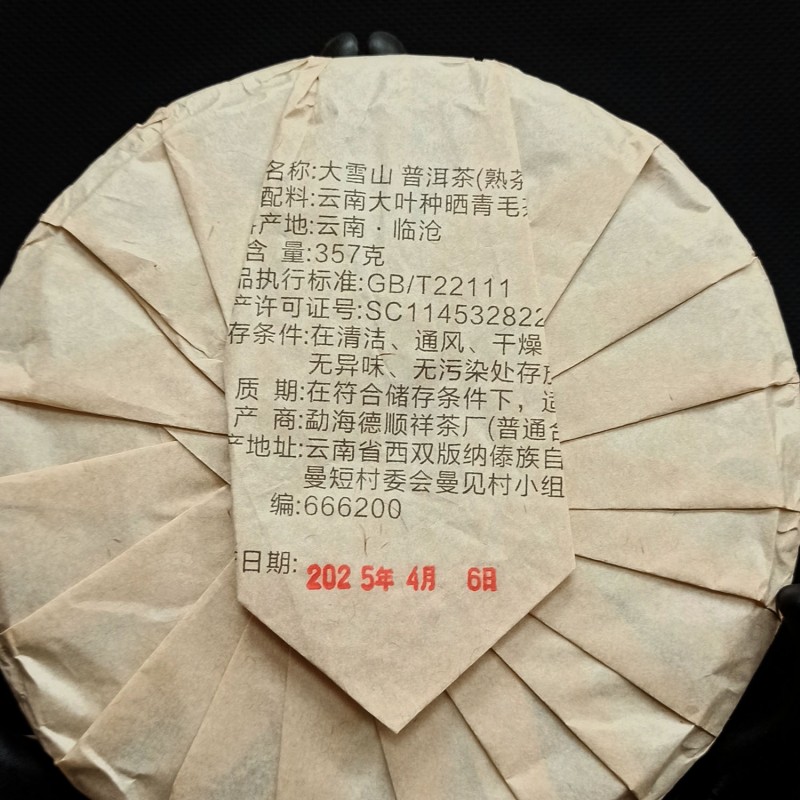 名称:大雪山 普洱茶(熟茶
配料:云南大叶种晒青毛
产地:云南·临沧
含 量:357克
品执行标准:GB/T22111
产许可证号:SC114532822
存条件:在清洁、通风、干燥
无异味、无污染处存放
质 期:在符合储存条件下，适
产 商:勐海德顺祥茶厂(普通合
产地址:云南省西双版纳傣族自
曼短村委会曼见村小组
编:666200
日期:
2025年 4月 6日